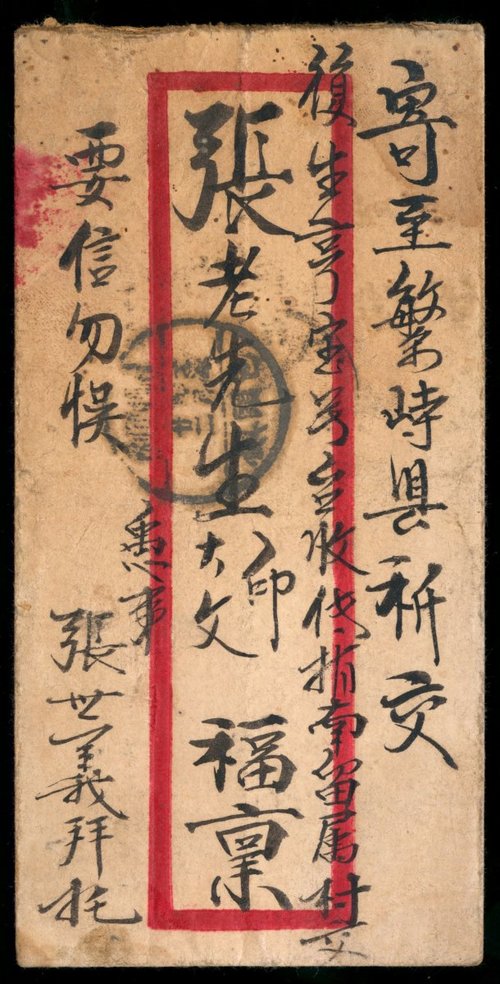 寄至繁峙县祈交
復生亨宝号台收代指南留属村交
張老先生大文印福禀
愚弟張世義拜托
要信勿悮